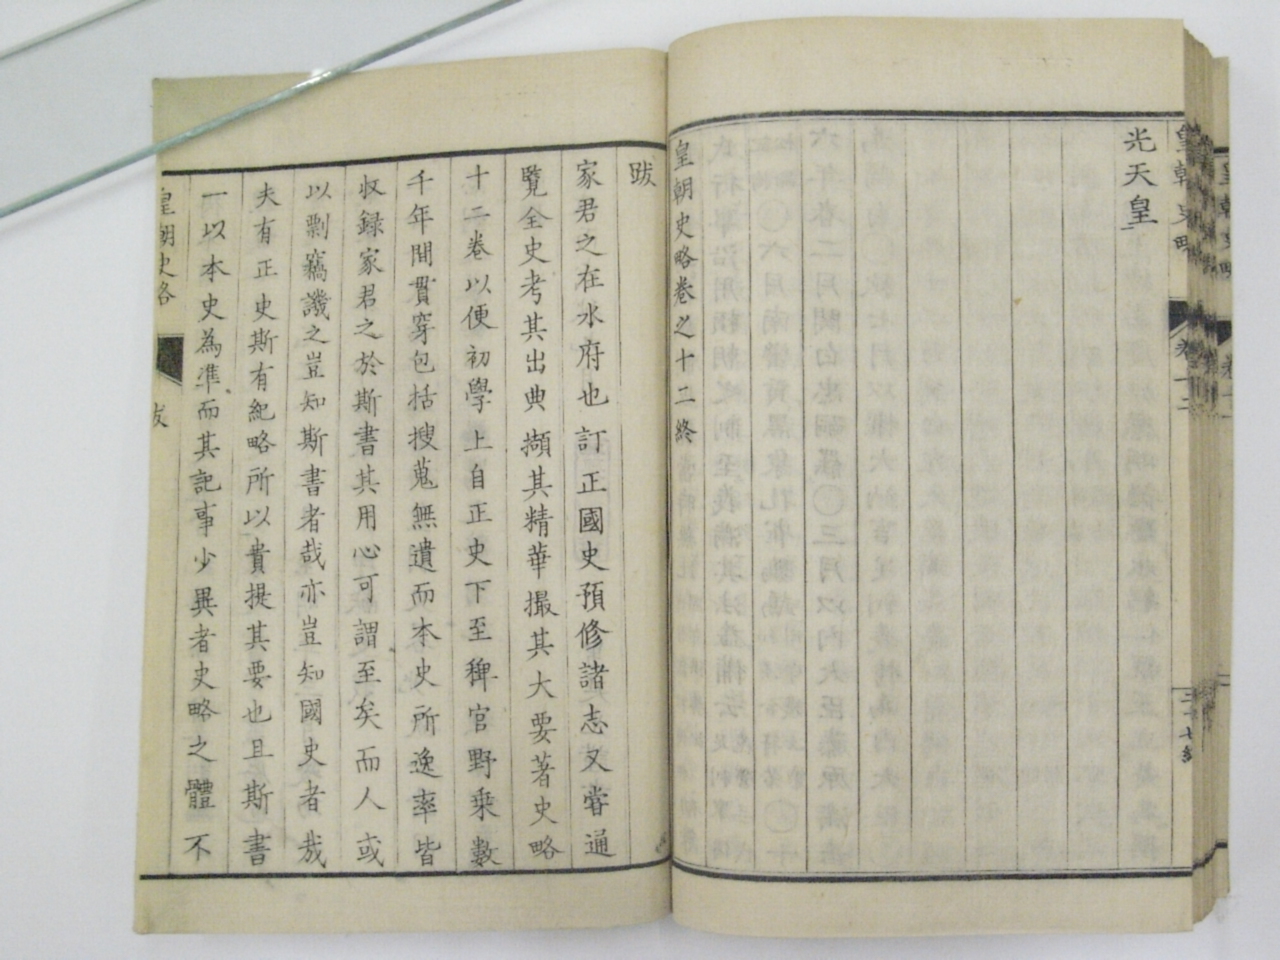 皇朝史略
卷十二
三十七終
光天皇
皇朝史略卷之十二終
跋
家君之在水府也訂正國史預修諸志又嘗通
覽全史考其出典擷其精華撮其大要著史略
十二卷以便初學上自正史下至稗官野乗數
千年間貫穿包括搜蒐無遺而本史所逸率皆
収録家君之於斯書其用心可謂至矣而人或
以剽竊譏之豈知斯書者哉亦豈知國史者哉
夫有正史斯有紀略所以貴提其要也且斯書
一以本史為準而其記事少異者史略之體不
皇朝史略
跋